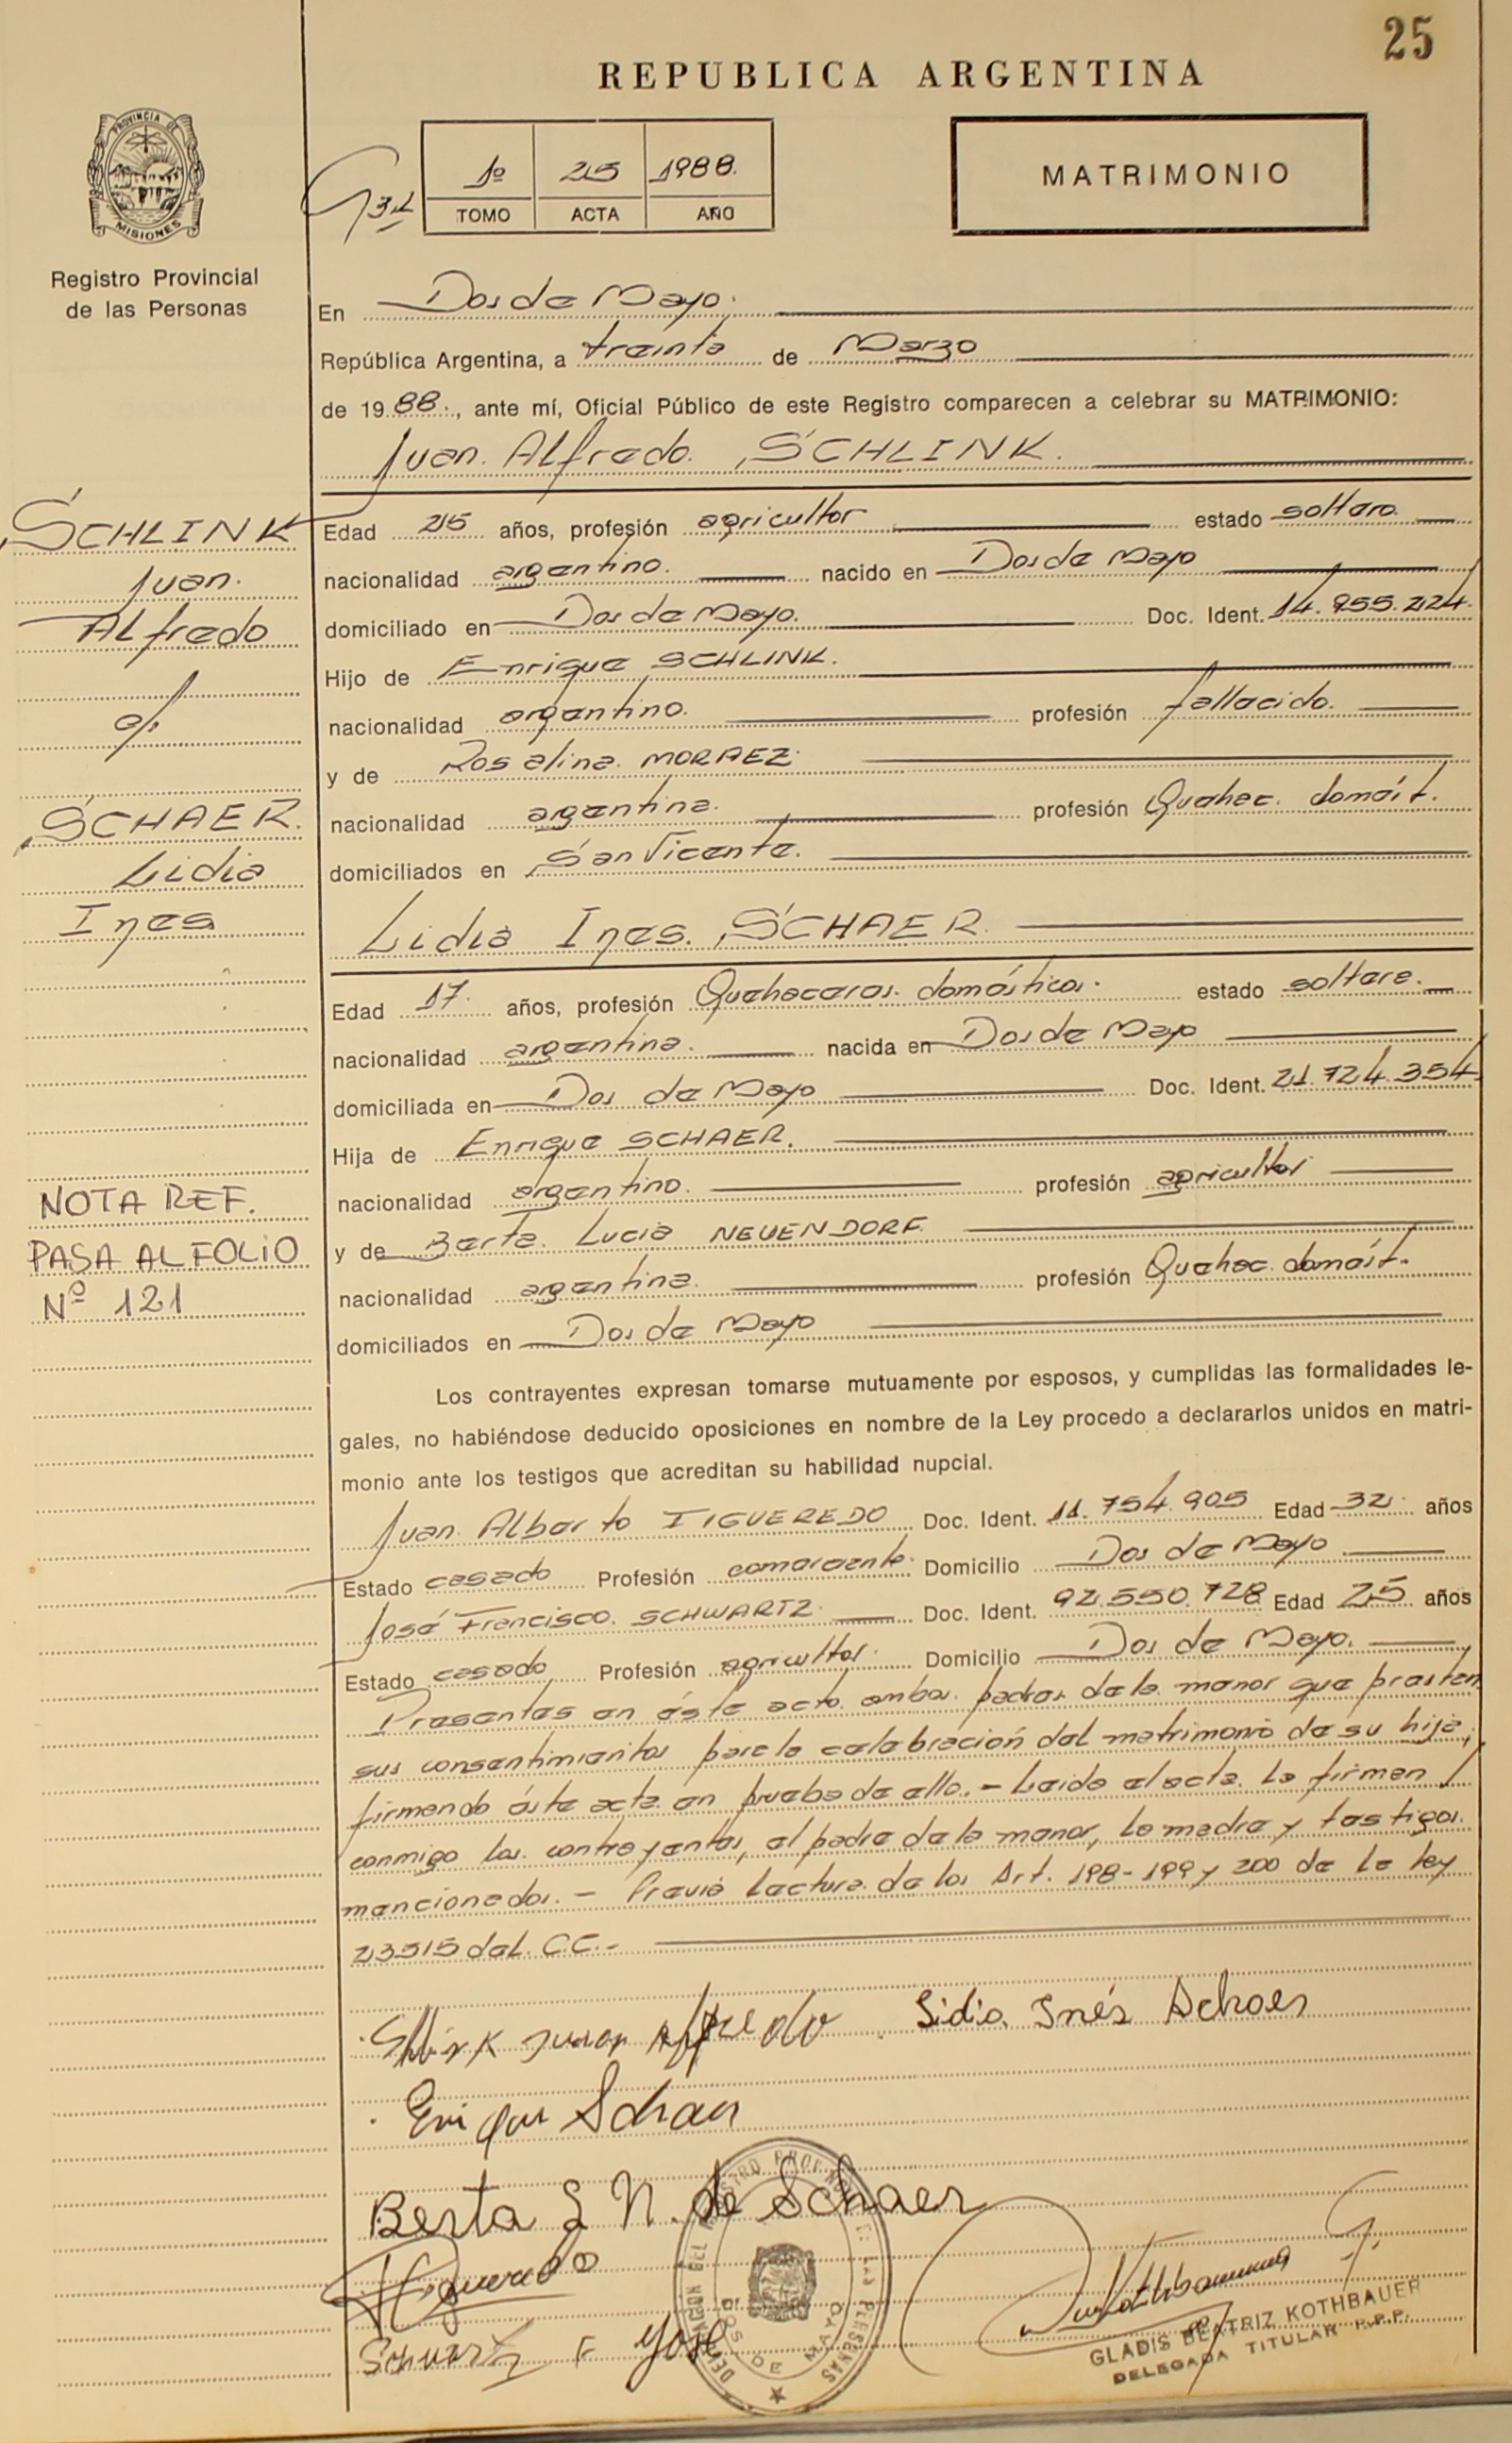 25
REPUBLICA ARGENTINA
PROVINCIA DE
MISIONES
Registro Provincial
de las Personas
1º 25 1988.
TOMO ACTA AÑO
MATRIMONIO
En Dos de Mayo.
República Argentina, a treinta de Marzo
de 1988., ante mí, Oficial Público de este Registro comparecen a celebrar su MATRIMONIO:
Juan Alfredo SCHLINK.
Edad 25 años, profesión agricultor estado soltero.
nacionalidad argentino. nacido en Dos de Mayo
domiciliado en Dos de Mayo. Doc. Ident. 14.955.224.
Hijo de Enrique SCHLINK.
nacionalidad argentino. profesión fallecido.
y de Rosalina MORAEZ.
nacionalidad argentina. profesión Quehac. domést.
domiciliados en San Vicente.
Lidia Ines SCHAER.
Edad 17. años, profesión Quehaceres domésticos. estado soltera.
nacionalidad argentina. nacida en Dos de Mayo
domiciliada en Dos de Mayo Doc. Ident. 21.724.354
Hija de Enrique SCHAER.
nacionalidad argentino. profesión agricultor
y de Berta Lucia NEUENDORF.
nacionalidad argentina. profesión Quehac. domést.
domiciliados en Dos de Mayo
Los contrayentes expresan tomarse mutuamente por esposos, y cumplidas las formalidades le-
gales, no habiéndose deducido oposiciones en nombre de la Ley procedo a declararlos unidos en matri-
monio ante los testigos que acreditan su habilidad nupcial.
Juan Alberto FIGUEREDO Doc. Ident. 11.754.905 Edad 32 años
Estado casado Profesión comerciante. Domicilio Dos de Mayo
José Francisco SCHWARTZ Doc. Ident. 92.550.728 Edad 25 años
Estado casado Profesión agricultor. Domicilio Dos de Mayo.
Presentes en éste acto ambos padres de la menor que prestan
sus consentimientos para la celebración del matrimonio de su hija,
firmando éste acta en prueba de ello.- Leida el acta la firman
conmigo los contrayentes, el padre de la menor, la madre y testigos
mencionados.- Previa lectura de los Art. 198-199 y 200 de la ley
23515 del C.C.-
SCHLINK
Juan
Alfredo
c/
SCHAER.
Lidia
Ines
NOTA REF.
PASA AL FOLIO
Nº 121
Shlink Juan Alfredo Lidia Inés Schaer
Enrique Schaer
Berta L N. de Schaer
Figueredo
Schwartz F José
DELEGACION DEL REGISTRO PROVINCIAL DE LAS PERSONAS
DOS DE MAYO
GLADIS BEATRIZ KOTHBAUER
DELEGADA TITULAR R.P.P.